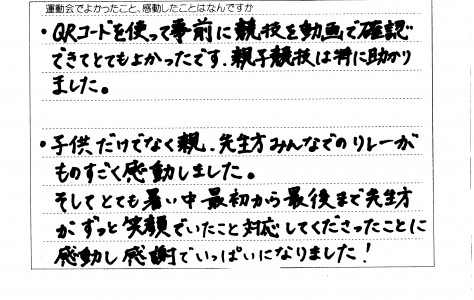 運動会でよかったこと、感動したことはなんですか
・QRコードを使って事前に競技を動画で確認
できてとてもよかったです。親子競技は特に助かり
ました。
・子供だけでなく親、先生方みんなでのリレーが
ものすごく感動しました。
そしてとても暑い中最初から最後まで先生方
がずっと笑顔でいたこと対応してくださったことに
感動し感謝でいっぱいになりました!